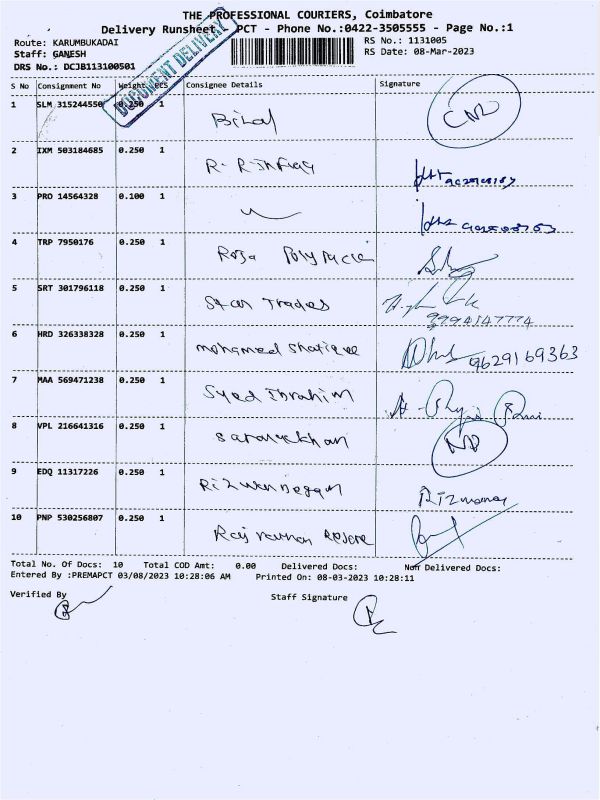 THE PROFESSIONAL COURIERS, Coimbatore
Delivery Runsheet PCT - Phone No.:0422-3505555 - Page No.:1
Route: KARUMBUKADAI
RS No.: 1131005
Staff: GANESH
RS Date: 08-Mar-2023
DRS No.: DCJB113100501
DOCUMENT DELIVERY
S No Consignment No Weight PCS Consignee Details Signature
1 SLM 315244550 0.250 1 Bilal
2 IXM 503184685 0.250 1
3 PRO 14564328 0.100 1
4 TRP 7950176 0.250 1 Roja
5 SRT 301796118 0.250 1 Star Trades
9994547774
6 HRD 326338328 0.250 1 mohamed shafique 9629169363
7 MAA 569471238 0.250 1 Syed Ibrahim
8 VPL 216641316 0.250 1
9 EDQ 11317226 0.250 1
10 PNP 530256807 0.250 1
Total No. Of Docs: 10 Total COD Amt: 0.00 Delivered Docs: Non Delivered Docs:
Entered By :PREMAPCT 03/08/2023 10:28:06 AM Printed On: 08-03-2023 10:28:11
Verified By
Staff Signature